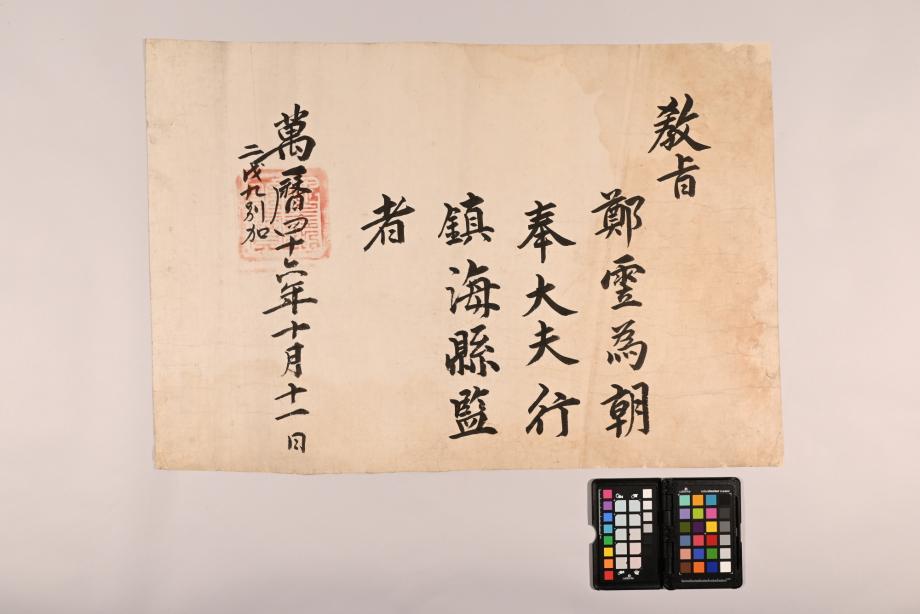 教旨
鄭雲為朝
奉大夫行
鎮海縣監
者
萬曆四十六年十月十一日
二戌九別加